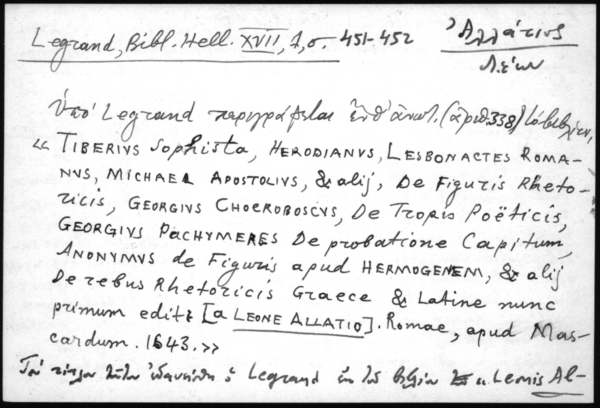 Legrand, Bibl. Hell. XVII, 1, σ. 451-452
Ἀλλάτιος
Λέων
Ὑπό Legrand περιγράφεται ἔνθ' ἀνωτ. (ἀριθ. 338) τό βιβλίον,
« TIBERIVS Sophista, HERODIANVS, LESBONACTES ROMA-
NVS, MICHAEL APOSTOLIVS, & alij, De Figuris Rheto-
ricis, GEORGIVS CHOEROBOSCVS, De Tropis Poëticis,
GEORGIVS PACHYMERES De probatione Capitum,
ANONYMVS de Figuris apud HERMOGENEM, & alij
De rebus Rhetoricis Graece & Latine nunc
primum editi [a LEONE ALLATIO]. Romae, apud Mas-
cardum. 1643. »
Τόν τίτλον τοῦτον ὁ Legrand ἐκ τοῦ βιβλίου « Leonis Al-